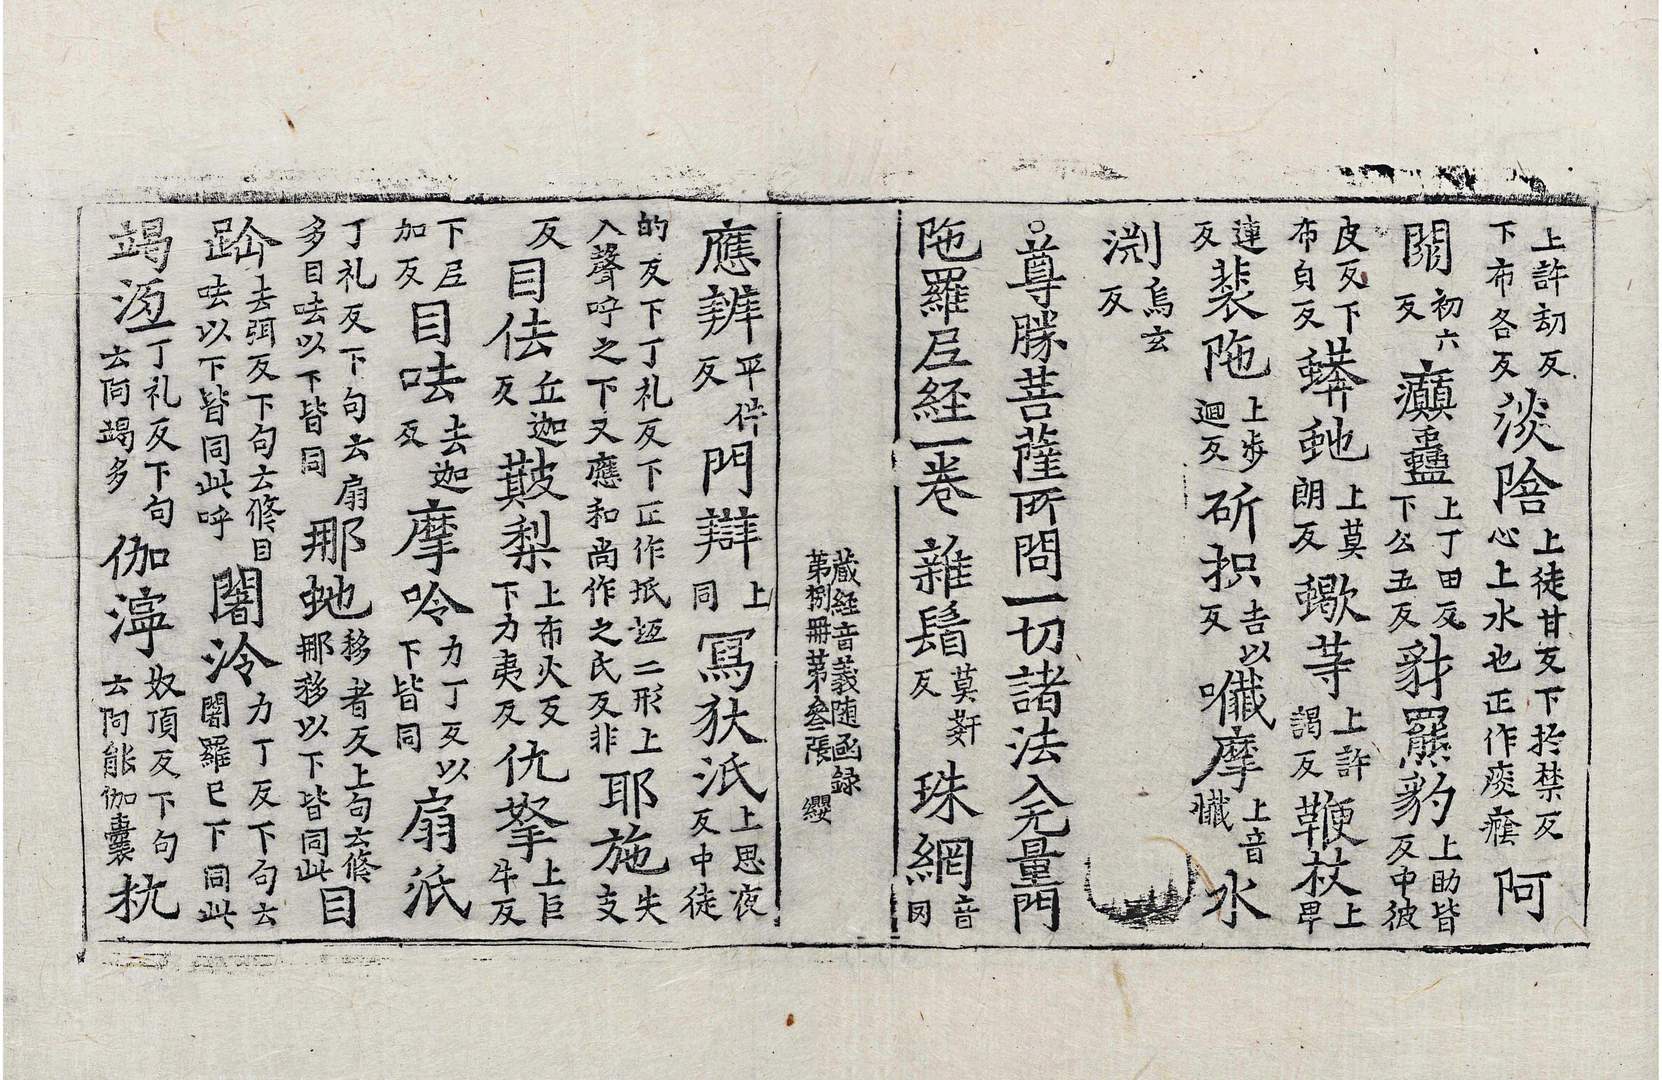 上許刧反下布各反淡陰上徒甘反下扵禁反心上水也正作痰癊阿
閦初六反癲蠱上丁田反下公五反豺羆豹上助皆反中彼
皮反下布皃反蟒虵上莫朗反蠍等上許謁反鞭杖上卑
連反裴陁上步迴反斫抧吉以反嚱摩上音巇水
渕烏玄反
。尊勝菩薩所問一切諸法入无量門
陁羅尼経一卷 雜鬘莫姧反珠網音冈
藏経音義随函録
第捌冊第叄張 纓
應辨平件反門辯上同寫狄泜上思夜反中徒
的反下丁礼反下正作抵坘二形上入聲呼之下又應和尚作之氏反非耶施失支
反目佉丘迦反鞁梨上布火反下力夷反仇拏上巨牛反
下尼加反目呿去迦反摩呤力丁反以下皆同扇泜
丁礼反下句云扇多目呿以下皆同那虵移者反上句云修那移以下皆同此目
跲去弭反下句云修目呿以下皆同此呼闍泠力丁反下句云闍羅已下同此
竭洍丁礼反下句云阿竭多伽濘奴頂反下句云阿能伽囊杭